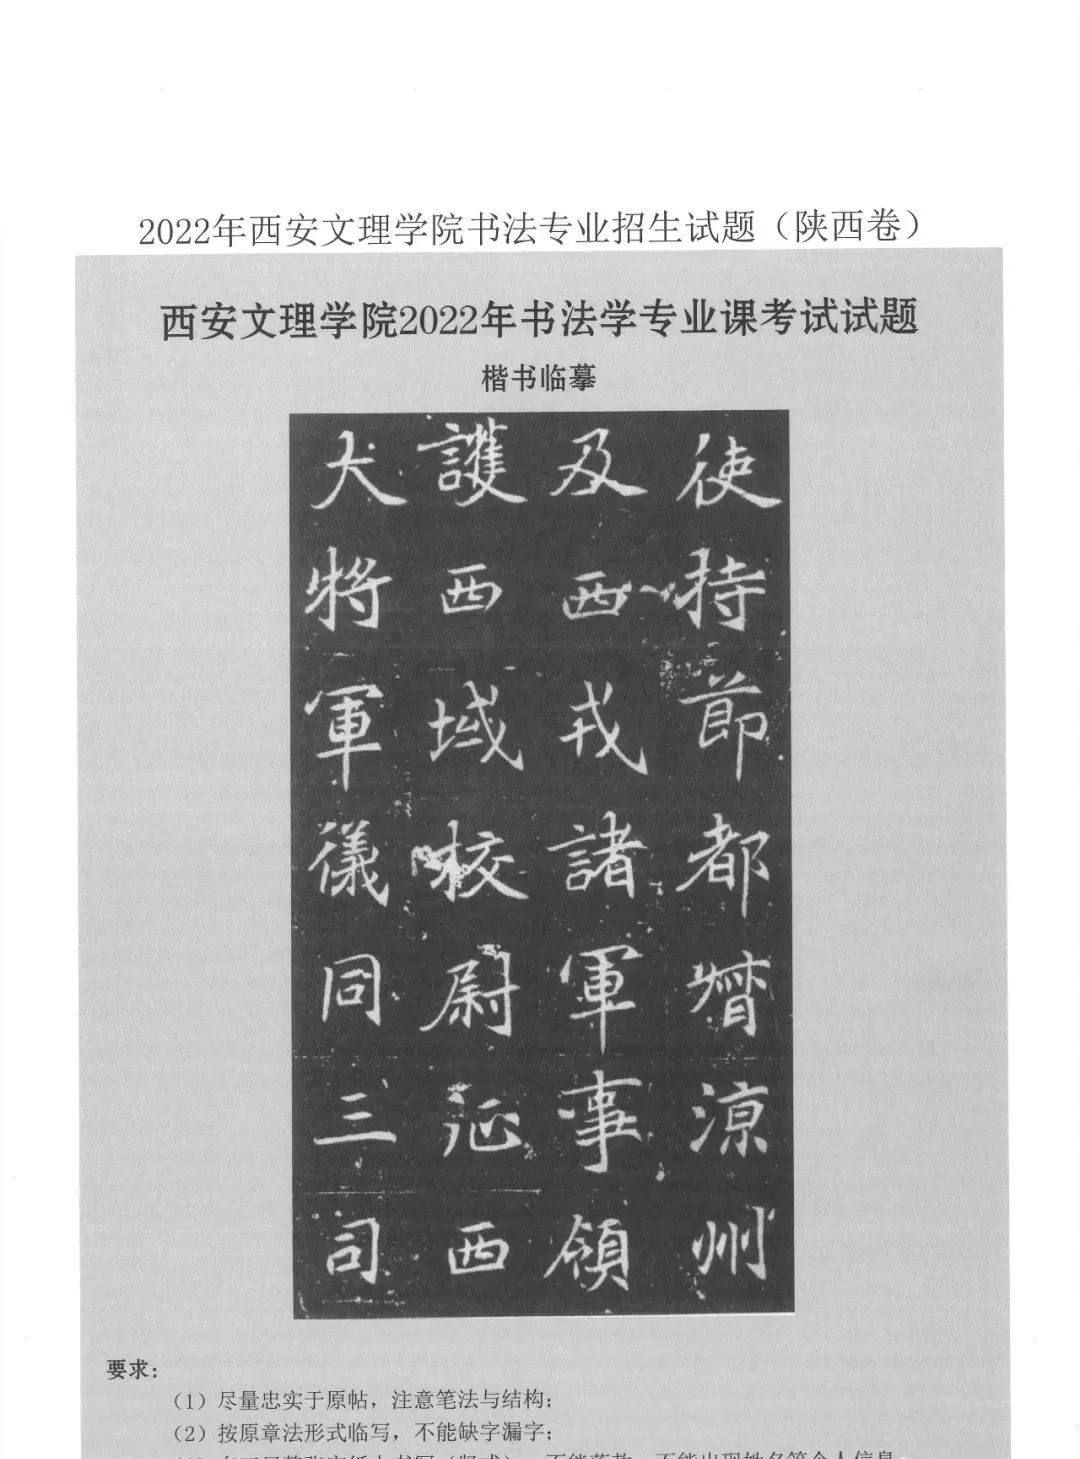 2022年西安文理学院书法专业招生试题（陕西卷）
西安文理学院2022年书法学专业课考试试题
楷书临摹
使持節都督涼州
及西戎諸軍事領
護西域校尉征西
大將軍儀同三司
要求：
（1）尽量忠实于原帖，注意笔法与结构；
（2）按原章法形式临写，不能缺字漏字；